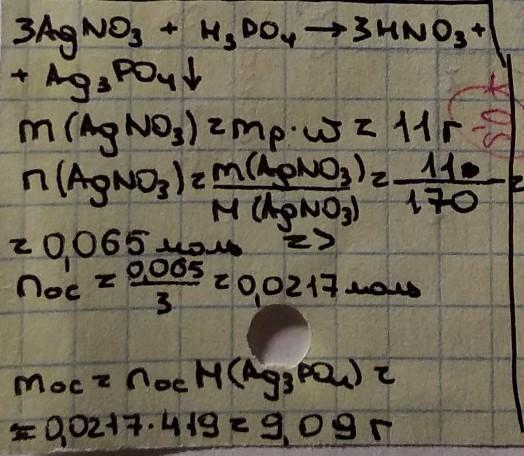 3AgNO₃ + H₃PO₄ → 3HNO₃ +
+ Ag₃PO₄↓
m(AgNO₃) = mр·ω = 11г
n(AgNO₃) = m(AgNO₃)/M(AgNO₃) = 11/170 =
= 0,065 моль =>
nос = 0,065/3 = 0,0217 моль
mос = nос M(Ag₃PO₄) =
= 0,0217·419 = 9,09 г